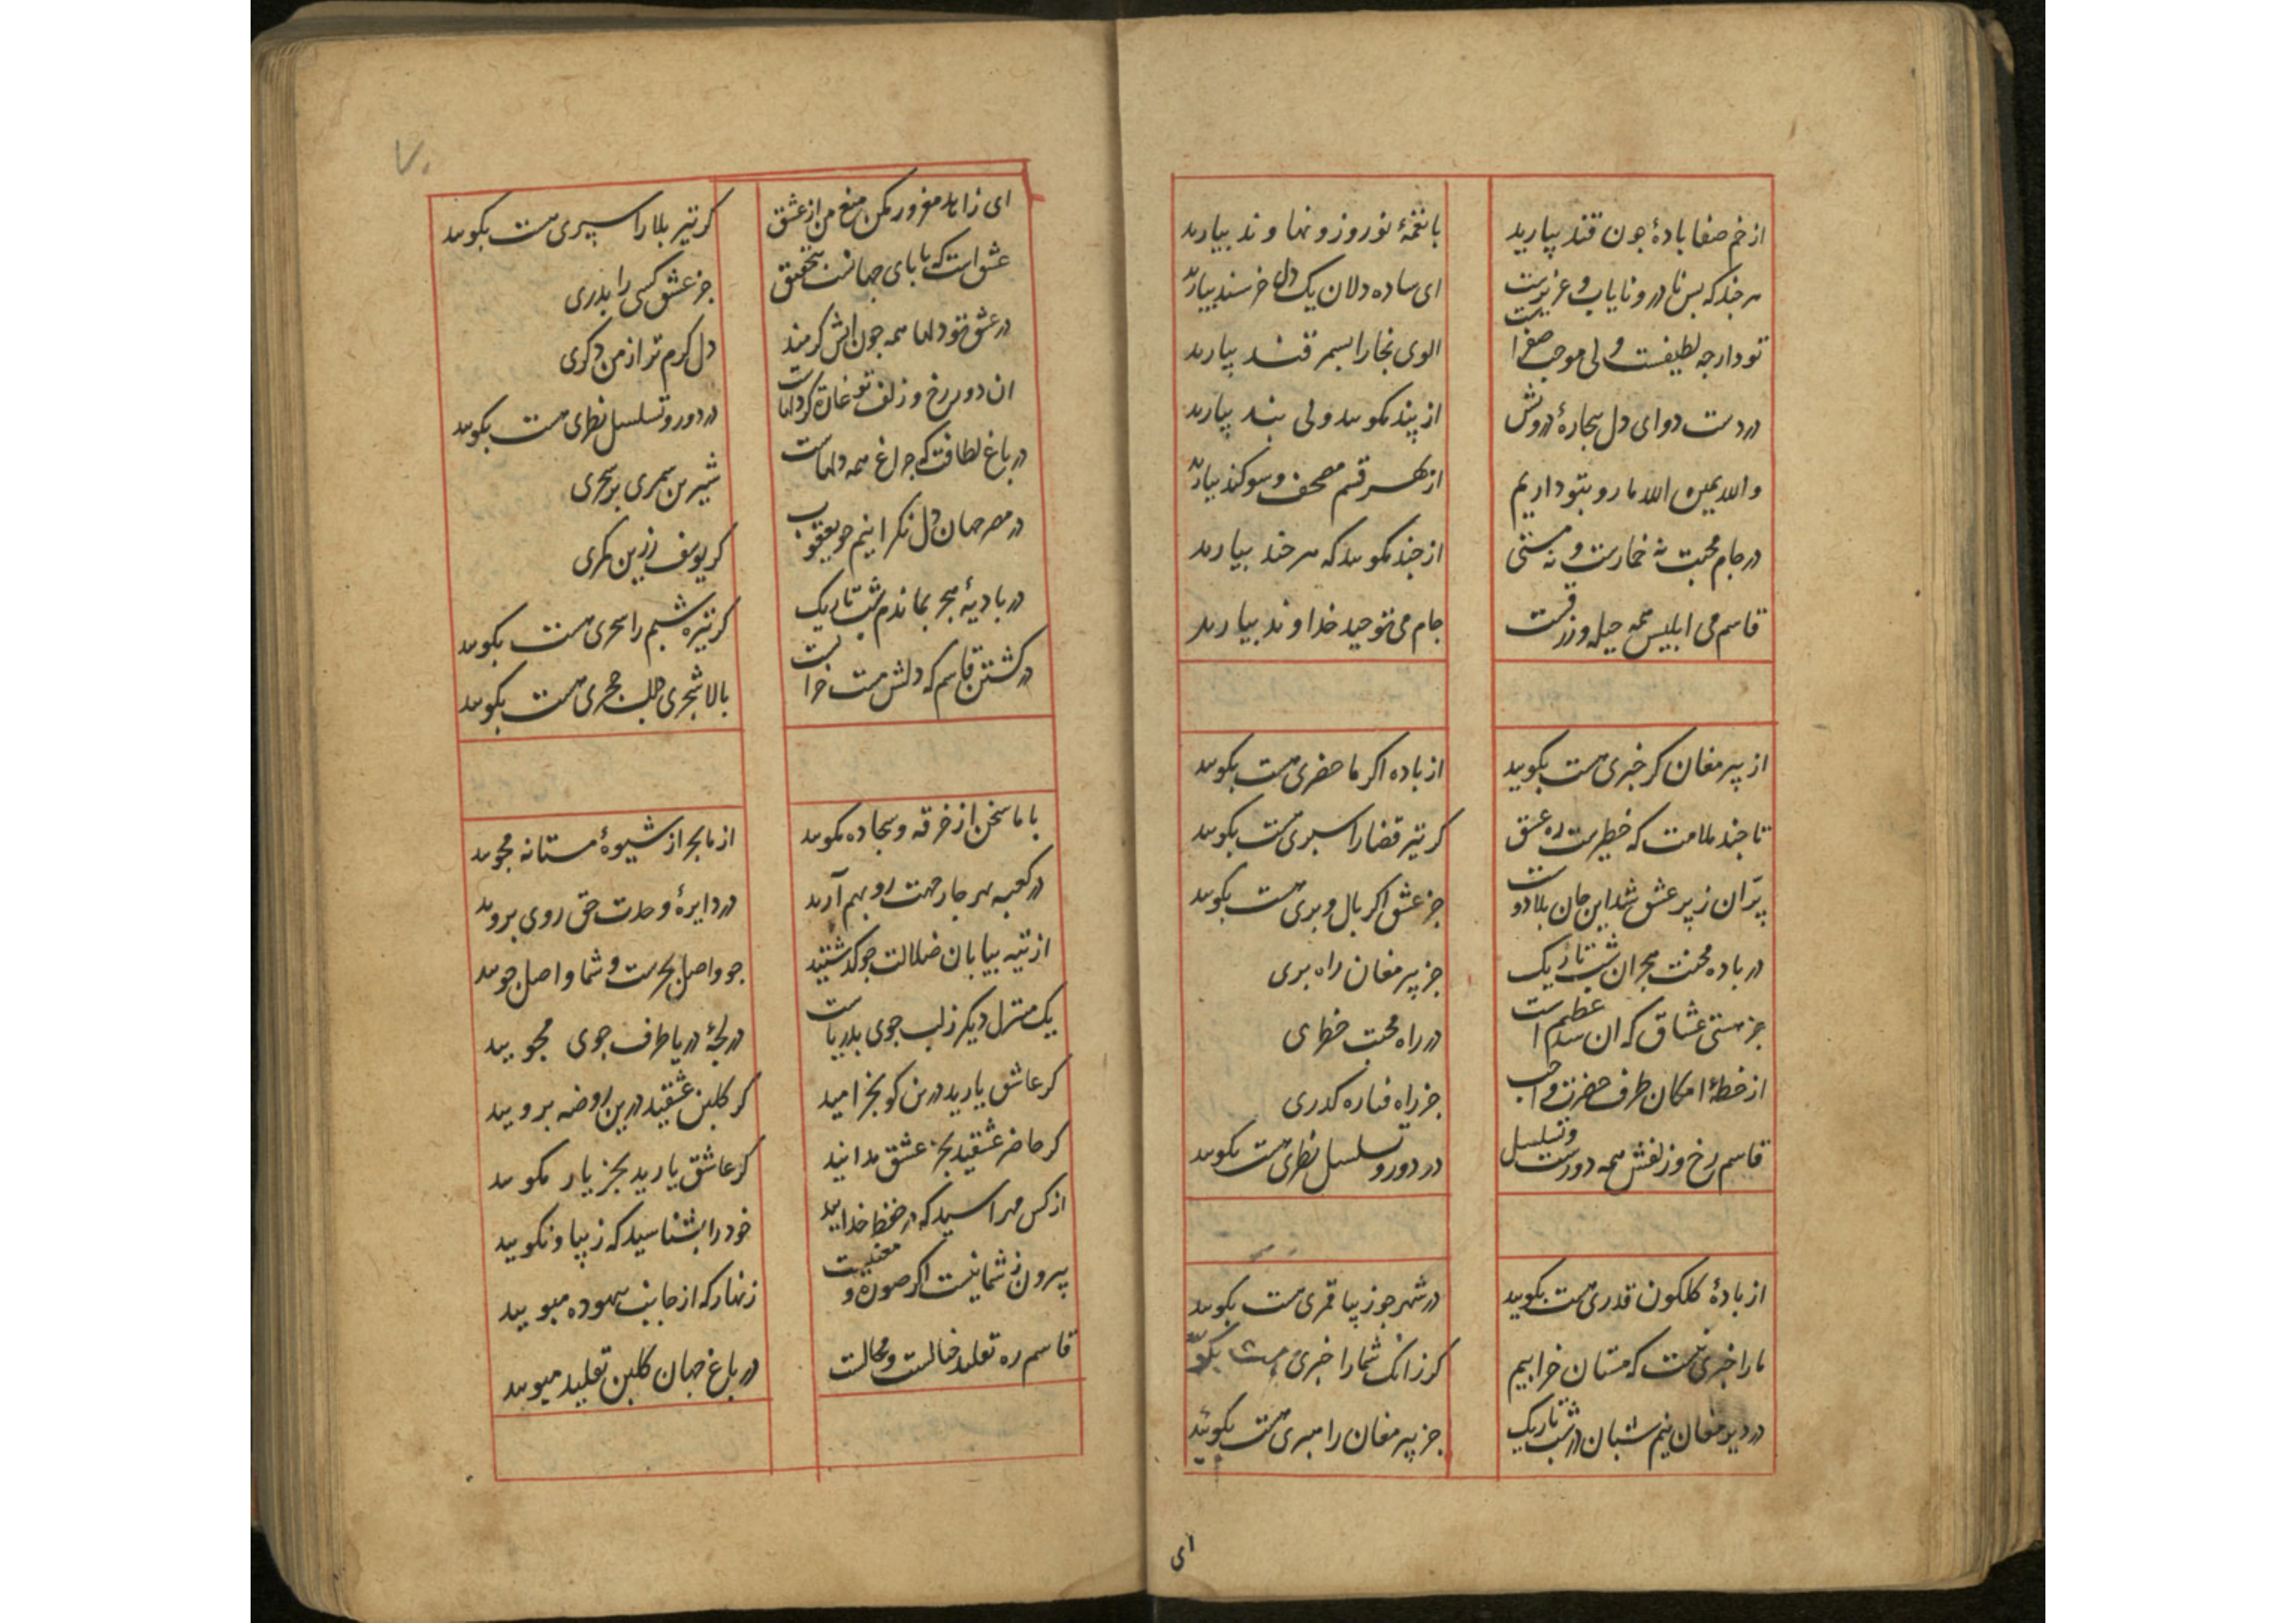 از خم صفا بادهٔ جون قند بیارید
با نغمهٔ نوروز و نهاوند بیارید
هر جند که بس نادر و نایاب و عزیزست
ای ساده دلان یک دل خرسند بیارید
تو دار جه لطیفست ولی موجب صفراست
الوی بخارا بسمرقند بیارید
در دست دوای دل بیجارهٔ درویش
از پند مکویید ولی بند بیارید
والله یمین الله ما رو بتو داریم
از بهر قسم مصحف و سوکند بیارید
در جام محبت نه خمارست و نه مستی
از جند مکویید که هر جند بیارید
قاسم می ابلیس همه حیله و زرقست
جام می توحید خداوند بیارید
از پیر مغان کر خبری هست بکویید
از باده اکر ماحضری هست بکویید
تا جند ملامت که خطیرست ره عشق
کر تیر قضا را سپری هست بکویید
پران ز پر عشق شد این جان بلادوست
جز عشق اکر بال و پری هست بکویید
در باده محنت هجران شب تاریک
جز پیر مغان راه بری
جز هستی عشاق که ان سد عظیم است
در راه محبت خطری
از خطهٔ امکان طرف حضرت واجب
جز راه فنا ره کذری
قاسم رخ و زلفش همه دورست و تسلسل
در دور و تسلسل نظری هست بکویید
از بادهٔ کلکون قدری هست بکویید
در شهر جو زیبا قمری هست بکویید
ما را خبری نیست که مستان خرابیم
کر زانک شما را خبری هست بکویید
در دیر مغان نیم شبان در شب تاریک
جز پیر مغان رامبری هست بکویید
ای
۷۰
ای زاهد مغرور مکن منع من از عشق
کر تیر بلا را سپری هست بکویید
عشق است که بابای جهانست بتحقیق
جز عشق کسی را پدری
در عشق تو دلها همه جون اتش کرمند
دل کرم تر از من دکری
ان دور رخ و زلف تو غارت کر دلهاست
در دور و تسلسل نظری هست بکویید
در باغ لطافت که جراغ همه دلهاست
شیرین سمری بر سحری
در مصر جهان دل نکرانیم جو یعقوب
کر یوسف زرین کمری
در بادیهٔ هجر بماندم شب تاریک
کر تیره شبم را سحری هست بکویید
در کشتن قاسم که دلش مست خرابست
بالا شجری قلب حجری هست بکویید
با ما سخن از خرقه و سجاده مکویید
از ما بجز از شیوهٔ مستانه مجویید
در کعبه بهر جار جهت رو بهم آرید
در دایرهٔ وحدت حق روی بروید
از تیه بیابان ضلالت جو کذشتید
جو واصل بحرست و شما واصل جویید
یک منزل دیکر ز لب جوی بدریاست
در لجهٔ دریا طرف جوی مجویید
کر عاشق یارید درین کو بخرامید
کر کلبن عشقید درین روضه برویید
کر حاضر عشقید بجز عشق مدانید
کر عاشق یارید بجز یار مکویید
از کس مهراسید که در حفظ خدایید
خود را بشناسید که زیبا و نکویید
بیرون ز شما نیست اکر صورت و معنیست
زنهار که از جانب بیهوده مپویید
قاسم ره تقلید خیالست و محالست
در باغ جهان کلبن تقلید مبویید